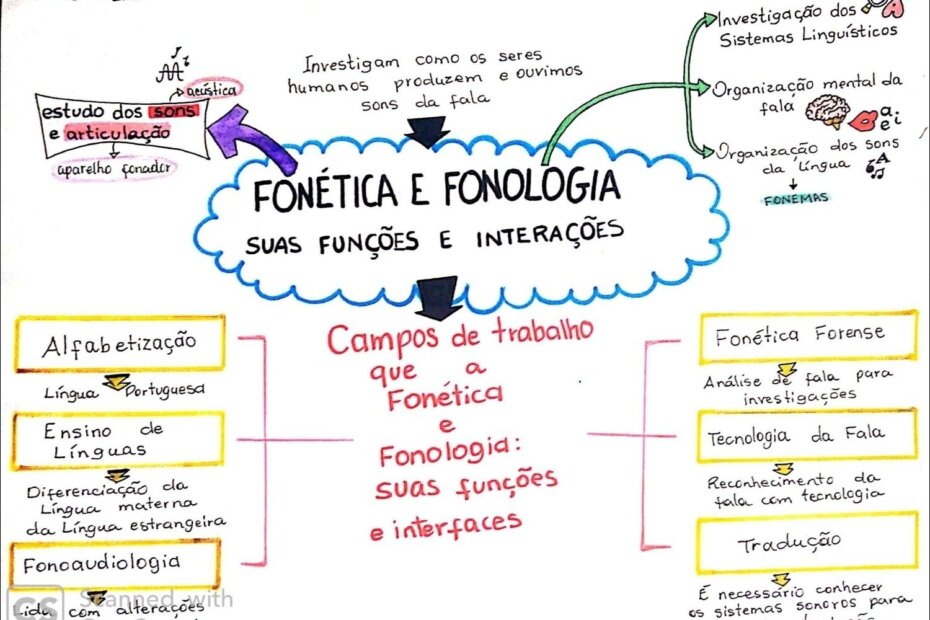 Investigam como os seres
humanos produzem e ouvimos
sons da fala
acústica
estudo dos sons
e articulação
aparelho fonador
Investigação dos
Sistemas Linguísticos
Organização mental da
fala
a.
e i
Organização dos sons
da língua
FONEMAS
FONÉTICA E FONOLOGIA
SUAS FUNÇÕES E INTERAÇÕES
Campos de trabalho
que a
Fonética
e
Fonologia:
suas funções
e interfaces
Alfabetização
Língua Portuguesa
Ensino de
Línguas
Diferenciação da
Língua materna
da Língua estrangeira
Fonoaudiologia
Lida com alterações
Fonética Forense
Análise de fala para
investigações
Tecnologia da Fala
Reconhecimento da
fala com tecnologia
Tradução
É necessário conhecer
os sistemas sonoros para
CS
Scanned with